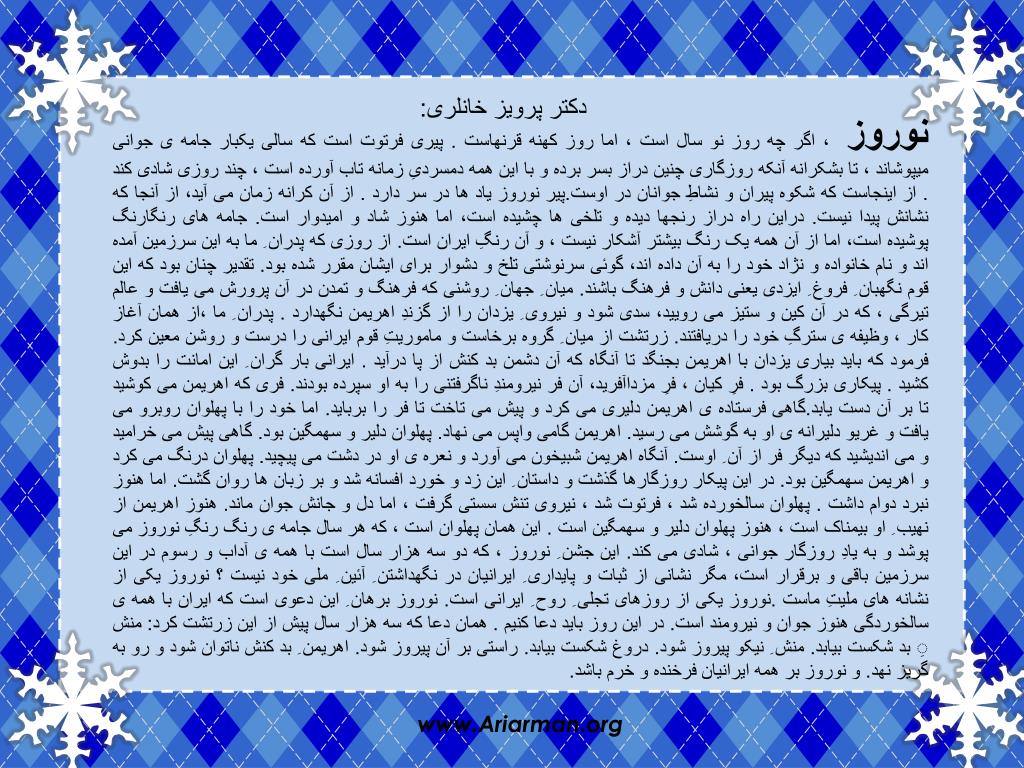 دکتر پرویز خانلری:
نوروز ، اگر چه روز نو سال است ، اما روز کهنه قرنهاست . پیری فرتوت است که سالی یکبار جامه ی جوانی
میپوشاند ، تا بشکرانه آنکه روزگاری چنین دراز بسر برده و با این همه دمسردیِ زمانه تاب آورده است ، چند روزی شادی کند
. از اینجاست که شکوه پیران و نشاطِ جوانان در اوست.پیر نوروز یاد ها در سر دارد . از آن کرانه زمان می آید، از آنجا که
نشانش پیدا نیست. دراین راه دراز رنجها دیده و تلخی ها چشیده است، اما هنوز شاد و امیدوار است. جامه های رنگارنگ
پوشیده است، اما از آن همه یک رنگ بیشتر آشکار نیست ، و آن رنگِ ایران است. از روزی که پدران ِ ما به این سرزمین آمده
اند و نام خانواده و نژاد خود را به آن داده اند، گوئی سرنوشتی تلخ و دشوار برای ایشان مقرر شده بود. تقدیر چنان بود که این
قوم نگهبان ِ فروغ ِ ایزدی یعنی دانش و فرهنگ باشند. میان ِ جهان ِ روشنی که فرهنگ و تمدن در آن پرورش می یافت و عالم
تیرگی ، که در آن کین و ستیز می رویید، سدی شود و نیروی ِ یزدان را از گزندِ اهریمن نگهدارد . پدران ِ ما ،از همان آغاز
کار ، وظیفه ی سترگِ خود را دریافتند. زرتشت از میان ِ گروه برخاست و ماموریتِ قوم ایرانی را درست و روشن معین کرد.
فرمود که باید بیاری یزدان با اهریمن بجنگد تا آنگاه که آن دشمن بد کنش از پا درآید . ایرانی بار گران ِ این امانت را بدوش
کشید . پیکاری بزرگ بود . فرِ کیان ، فرِ مزداآفرید، آن فر نیرومندِ ناگرفتنی را به او سپرده بودند. فری که اهریمن می کوشید
تا بر آن دست یابد.گاهی فرستاده ی اهریمن دلیری می کرد و پیش می تاخت تا فر را برباید. اما خود را با پهلوان روبرو می
یافت و غریو دلیرانه ی او به گوشش می رسید. اهریمن گامی واپس می نهاد. پهلوان دلیر و سهمگین بود. گاهی پیش می خرامید
و می اندیشید که دیگر فر از آن ِ اوست. آنگاه اهریمن شبیخون می آورد و نعره ی او در دشت می پیچید. پهلوان درنگ می کرد
و اهریمن سهمگین بود. در این پیکار روزگارها گذشت و داستان ِ این زد و خورد افسانه شد و بر زبان ها روان گشت. اما هنوز
نبرد دوام داشت . پهلوان سالخورده شد ، فرتوت شد ، نیروی تنش سستی گرفت ، اما دل و جانش جوان ماند. هنوز اهریمن از
نهیب ِ او بیمناک است ، هنوز پهلوان دلیر و سهمگین است . این همان پهلوان است ، که هر سال جامه ی رنگ رنگِ نوروز می
پوشد و به یادِ روزگار جوانی ، شادی می کند. این جشن ِ نوروز ، که دو سه هزار سال است با همه ی آداب و رسوم در این
سرزمین باقی و برقرار است، مگر نشانی از ثبات و پایداری ِ ایرانیان در نگهداشتن ِ آئین ِ ملی خود نیست ؟ نوروز یکی از
نشانه های ملیتِ ماست .نوروز یکی از روزهای تجلی ِ روح ِ ایرانی است. نوروز برهان ِ این دعوی است که ایران با همه ی
سالخوردگی هنوز جوان و نیرومند است. در این روز باید دعا کنیم . همان دعا که سه هزار سال پیش از این زرتشت کرد: منش
ِ بد شکست بیابد. منش ِ نیکو پیروز شود. دروغ شکست بیابد. راستی بر آن پیروز شود. اهریمن ِ بد کنش ناتوان شود و رو به
گریز نهد. و نوروز بر همه ایرانیان فرخنده و خرم باشد.
www.Ariarman.org